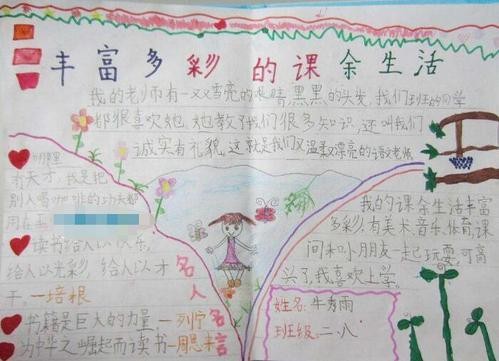 丰富多彩的课余生活
我的老师有一双雪亮的眼睛,黑黑的头发,我们班的同学
都很喜欢她,她教了我们很多知识,还叫我们
诚实有礼貌,这就是我们又温柔又漂亮的语文老师
哪里
有天才,我是把
别人喝咖啡的功夫都
用在工
读书给人以快乐,
给人以光彩,给人以才
干。一培根
书籍是巨大的力量一列宁
为中华之崛起而读书一周恩来
名人名言
我的课余生活丰富
多彩,有美术、音乐、体育课
间和小朋友一起玩耍,可高
兴了,我喜欢上学。
姓名:牛秀雨
班级:二.八